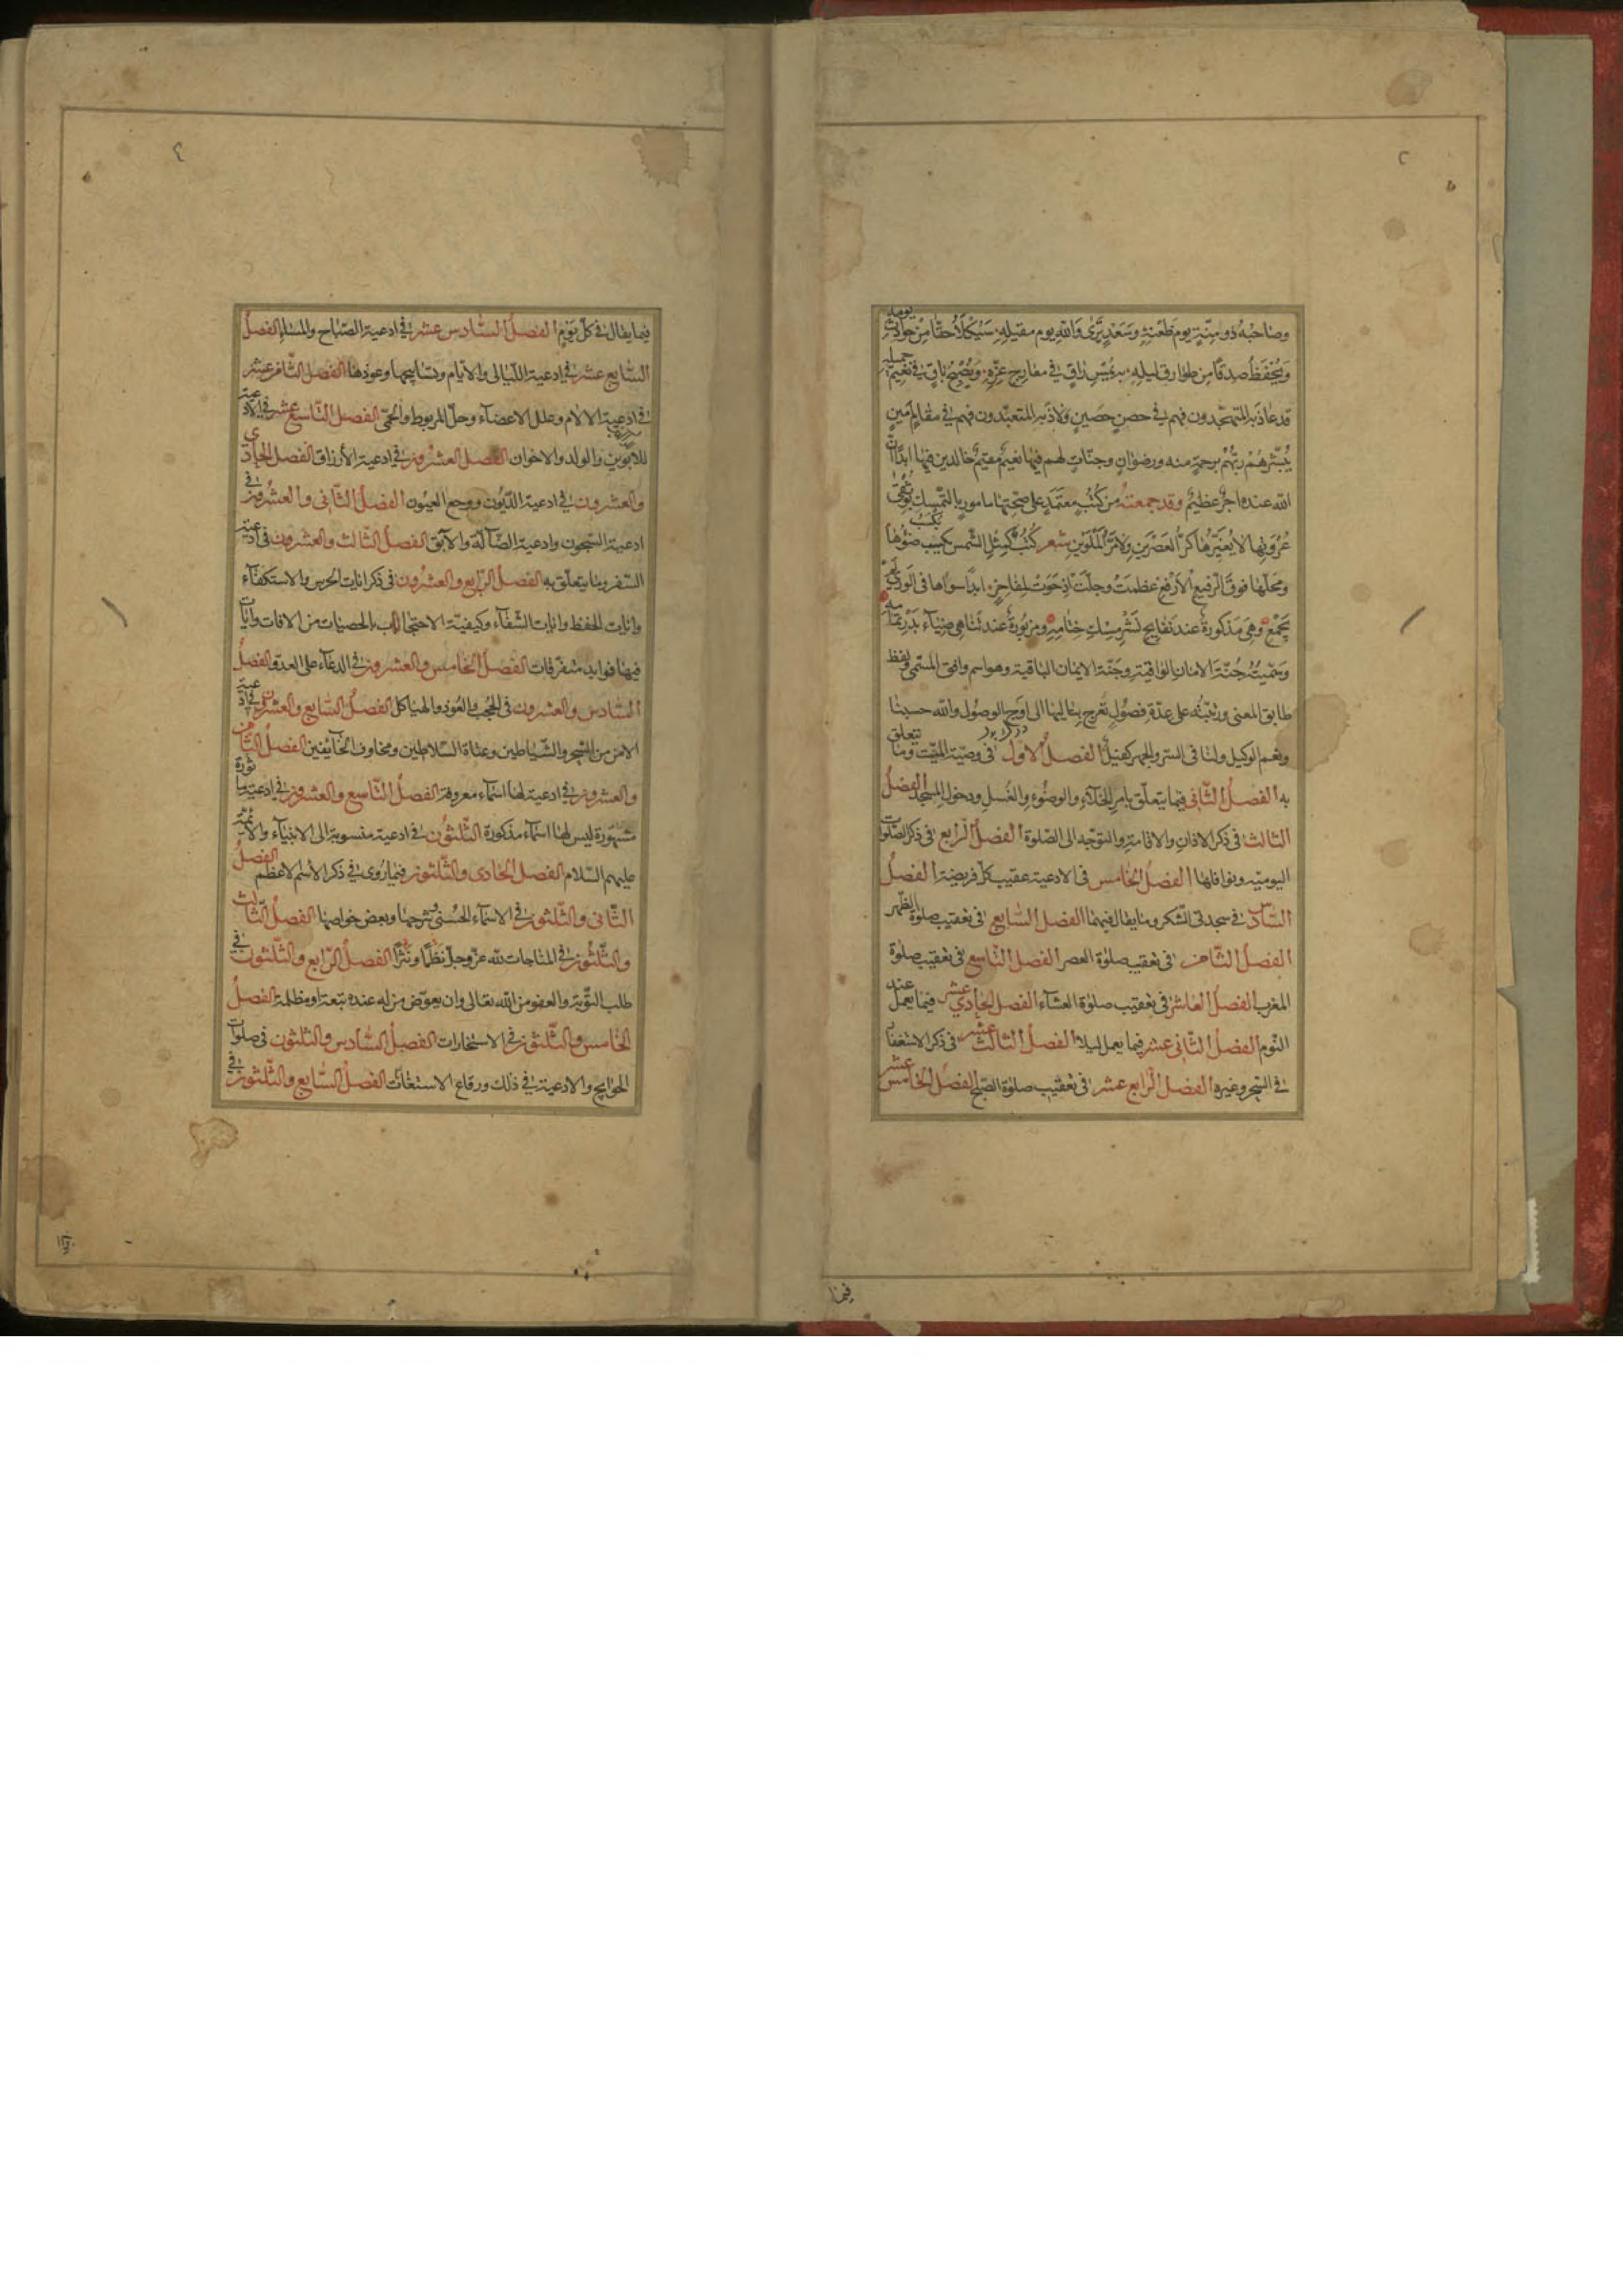 وصاحبه ذو منّة يوم ظعنه وسعد يرى والله يوم مقيله سيكلأ حقّا من حوادث يومه
ويحفظ صدقا من طوارق ليله يرقى في معارج عزّه ويصبح باق في نعيم جميله
قد عاذ به المتهجّدون فهم في حصن حصين ولاذ به المتعبّدون فهم في مقام امين
يُبشّرهم ربّهم برحمة منه ورضوان وجنّات لهم فيها نعيم مقيم خالدين فيها ابدًا انّ
الله عنده اجر عظيم وقد جمعته من كتب معتمد على صحّتها مامور بالتمسّك بوثقى
عروتها لا يغيّرها كرّ العصرين ولا مرّ الملوين شعر كتب كمثل الشمس يكتب ضوءها
ومحلّها فوق الرفيع الأرفع عظمت وجلّت اذ حوت لمفاخر ابدًا سواها في الورى لم
يجمع وهي مذكورة عند نفايح نشر مسك ختامه ومزبورة عند تناهى ضياء بدر تمامه
وسمّيته جُنّة الامان الواقية وجَنّة الايمان الباقية وهو اسم وافق المسمّى ولفظ
طابق المعنى ورتّبته على عدّة فصول تعرج بتاليها الى اوج الوصول والله حسبنا
ونعم الوكيل ولنا في السر والجهر كفيل الفصل الاول في وصيّة الميّت وما يتعلق
به الفصل الثّاني فيما يتعلّق بامر الخلاء والوضوء والغسل ودخول المسجد الفصل
الثالث في ذكر الاذان والاقامة والتوجّه الى الصّلوة الفصل الرابع في ذكر الصّلوات
اليوميّة ونوافلها الفصل الخامس في الادعية عقيب كلّ فريضة الفصل
السّادس في سجدتي الشّكر وما يقال فيهما الفصل السّابع في تعقيب صلوة الظهر
الفصل الثّامن في تعقيب صلوة العصر الفصل التّاسع في تعقيب صلوة
المغرب الفصل العاشر في تعقيب صلوة العشاء الفصل الحادي عشر فيما يعمل عند
النوم الفصل الثّاني عشر فيما يعمل ليلا الفصل الثالث عشر في ذكر الاستغفار
في السّحر وغيره الفصل الرّابع عشر في تعقيب صلوة الصّبح الفصل الخامس عشر
فيما
فيما يقال في كلّ يوم الفصل السّادس عشر في ادعية الصّباح والمساء الفصل
السّابع عشر في ادعية اللّيالي والايّام وتسابيحها وعوذها الفصل الثّامن عشر
في ادعية الالام وعلل الاعضاء وحلّ المربوط والحمّى الفصل التّاسع عشر في الادعية
للابوين والولد والاخوان الفصل العشرون في ادعية الأرزاق الفصل الحادي
والعشرون في ادعية الدّيون ووجع العيون الفصل الثّاني والعشرون في
ادعية السّجون وادعية الضّالّة والآبق الفصل الثّالث والعشرون في ادعية
السّفر وما يتعلّق به الفصل الرّابع والعشرون في ذكر ايات الحرس والاستكفاء
وايات الحفظ وايات الشّفاء وكيفيّة الاحتجاب بالحصيات من الافات وايات
فيها فوايد متفرقات الفصل الخامس والعشرون في الدعاء على العدوّ الفصل
السّادس والعشرون في الحجب والعوذ والهياكل الفصل السّابع والعشرون في ادعية
الامن من السّحر والشّياطين وعتاة السّلاطين ومخاوف الخائفين الفصل الثّامن
والعشرون في ادعية لها اسماء معروفة الفصل التّاسع والعشرون في ادعية ماثورة
مشهورة ليس لها اسماء مذكورة الثّلثون في ادعية منسوبة الى الانبياء والائمة
عليهم السّلام الفصل الحادي والثّلثون فيما روى في ذكر الأسم الاعظم الفصل
الثّاني والثّلثون في الاسماء الحسنى وشرحها وبعض خواصها الفصل الثّالث
والثّلثون في المناجات لله عزّ وجلّ نظمًا ونثرًا الفصل الرّابع والثّلثون في
طلب التّوبة والعفو من الله تعالى وان يعوّض من له عنده تبعة او مظلمة الفصل
الخامس والثّلثون في الاستخارات الفصل السّادس والثلثون في صلوات
الحوايج والادعية في ذلك ورقاع الاستغاثات الفصل السّابع والثّلثون في